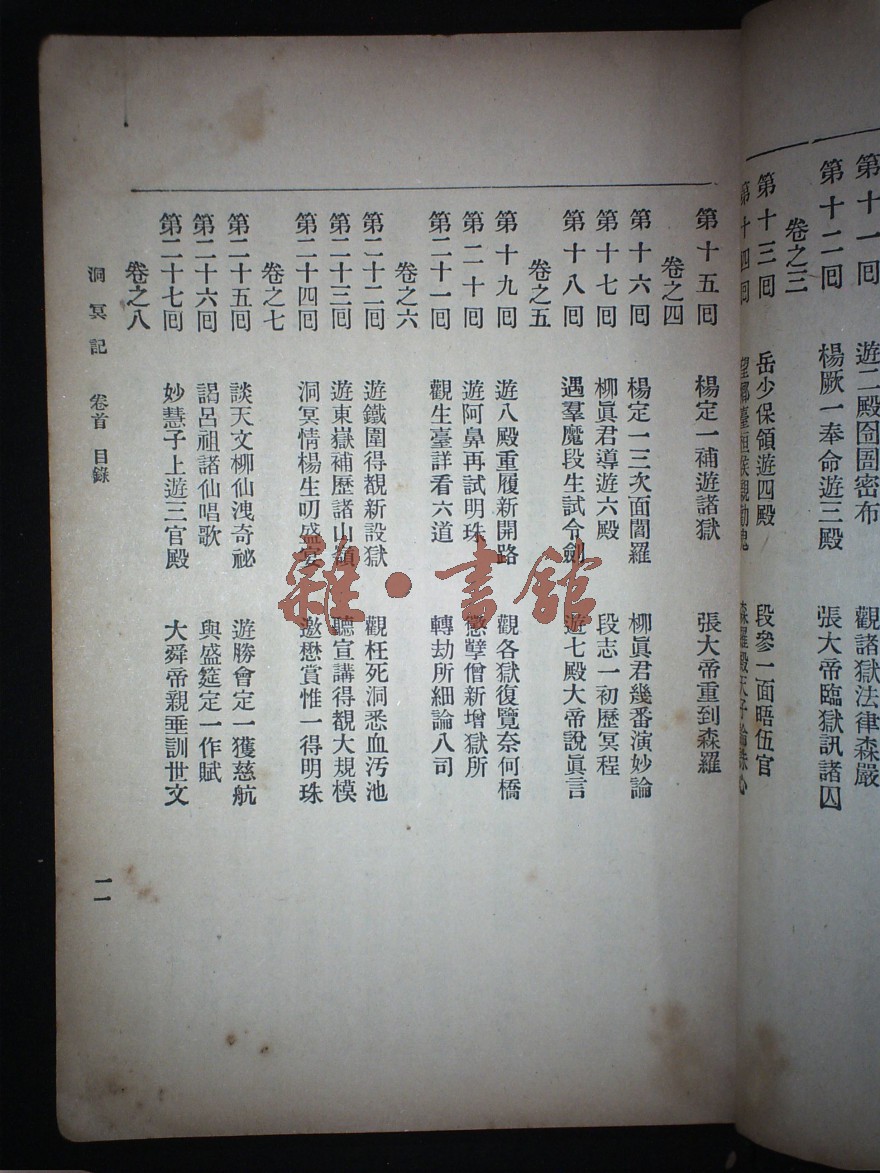 第十一回 遊二殿囹圄密布 觀諸獄法律森嚴
第十二回 楊厥一奉命遊三殿 張大帝臨獄訊諸囚
卷之三
第十三回 岳少保領遊四殿 段參一面晤伍官
第十四回
第十五回 楊定一補遊諸獄 張大帝重到森羅
卷之四
第十六回 楊定一三次面閻羅 柳眞君幾番演妙論
第十七回 柳眞君導遊六殿 段志一初歷冥程
第十八回 遇羣魔段生試令劍 遊七殿大帝說眞言
卷之五
第十九回 遊八殿重履新開路 觀各獄復覽奈何橋
第二十回 遊阿鼻再試明珠 懲孽僧新增獄所
第二十一回 觀生臺詳看六道 轉劫所細論八司
卷之六
第二十二回 遊鐵圍得覩新設獄 觀枉死洞悉血汚池
第二十三回 遊東嶽補歷諸山嶺 聽宣講得覩大規模
第二十四回 洞冥情楊生叨盛宴 邀懋賞惟一得明珠
卷之七
第二十五回 談天文柳仙洩奇祕 遊勝會定一獲慈航
第二十六回 謁呂祖諸仙唱歌 與盛筵定一作賦
第二十七回 妙慧子上遊三官殿 大舜帝親垂訓世文
卷之八
洞冥記 卷首 目錄 二
雜·書館